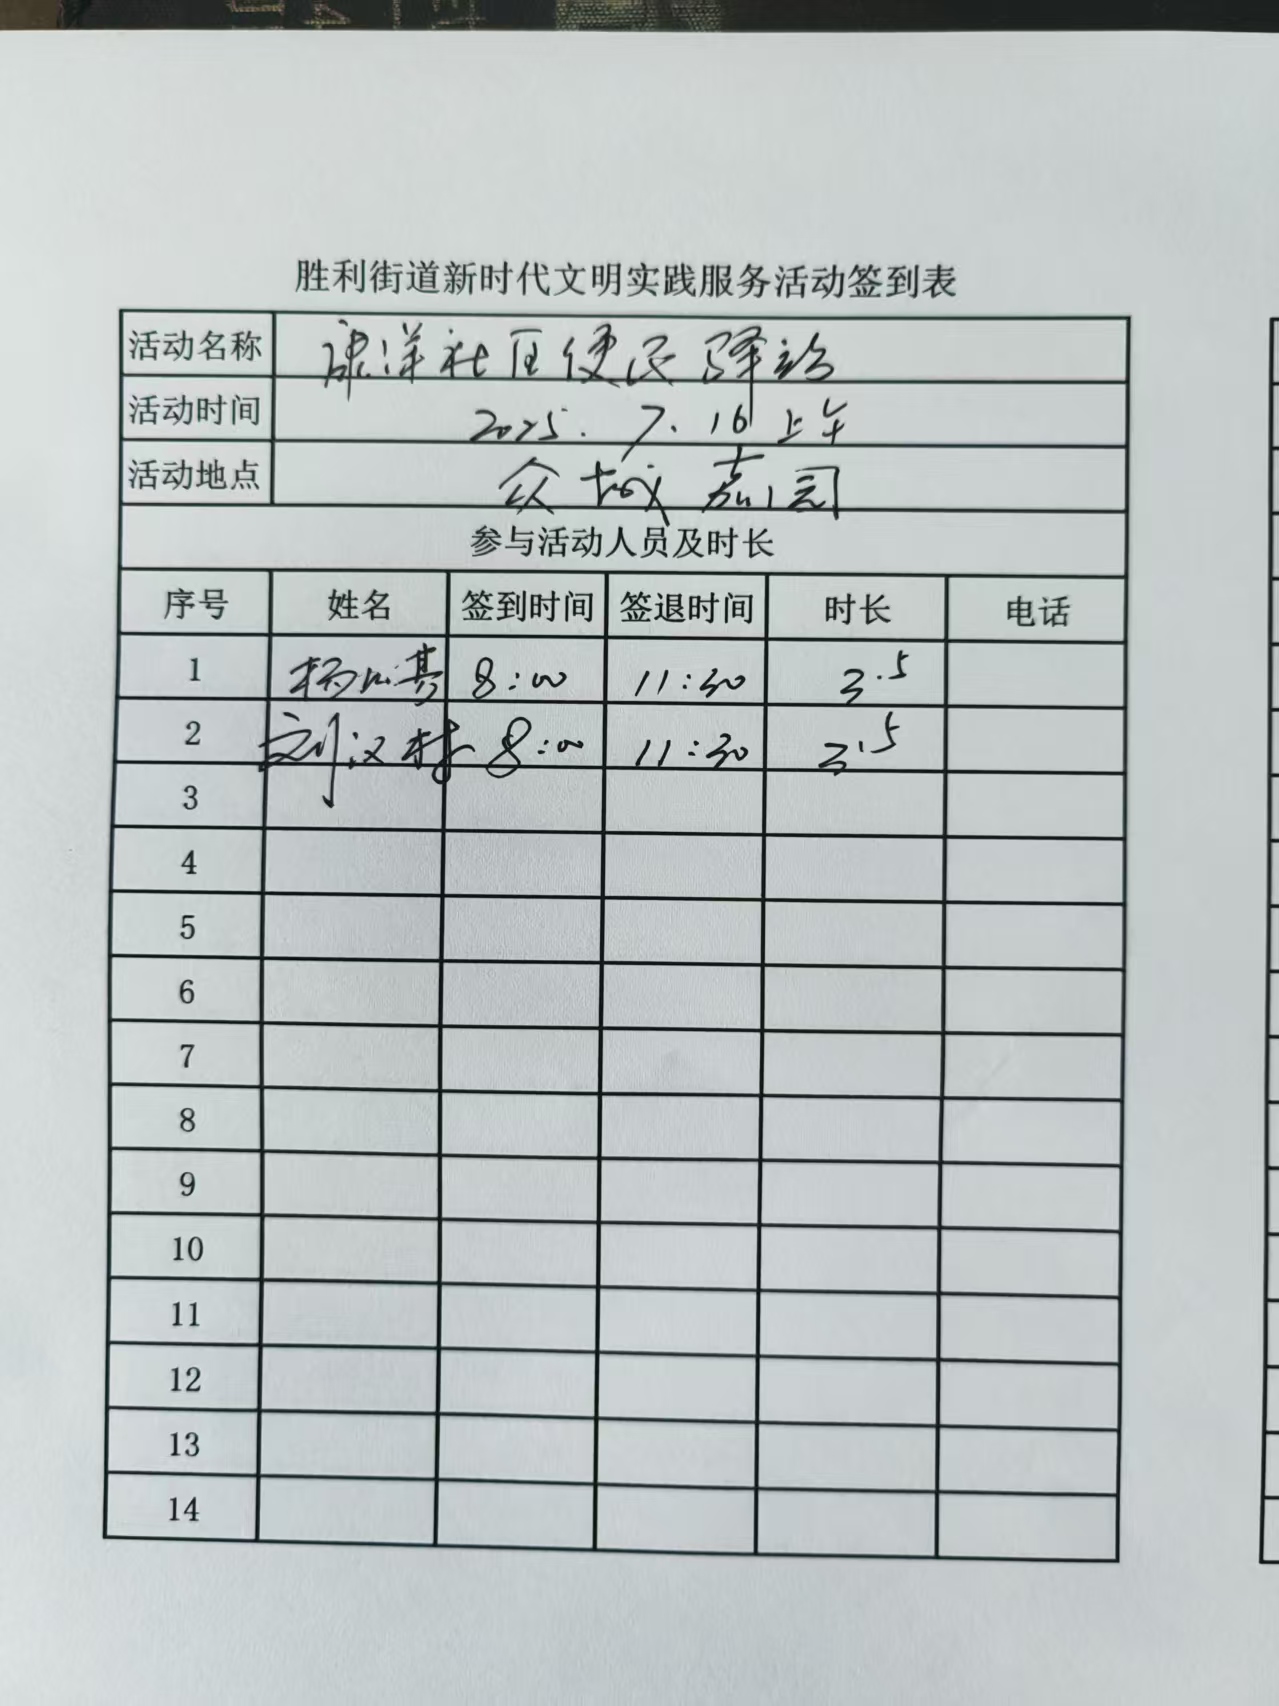 胜利街道新时代文明实践服务活动签到表
活动名称 康洋社区便民驿站
活动时间 2025.7.16上午
活动地点 众城嘉园
参与活动人员及时长
序号 姓名 签到时间 签退时间 时长 电话
1 杨 8:00 11:30 3.5
2 刘汉村 8:00 11:30 3.5
3
4
5
6
7
8
9
10
11
12
13
14